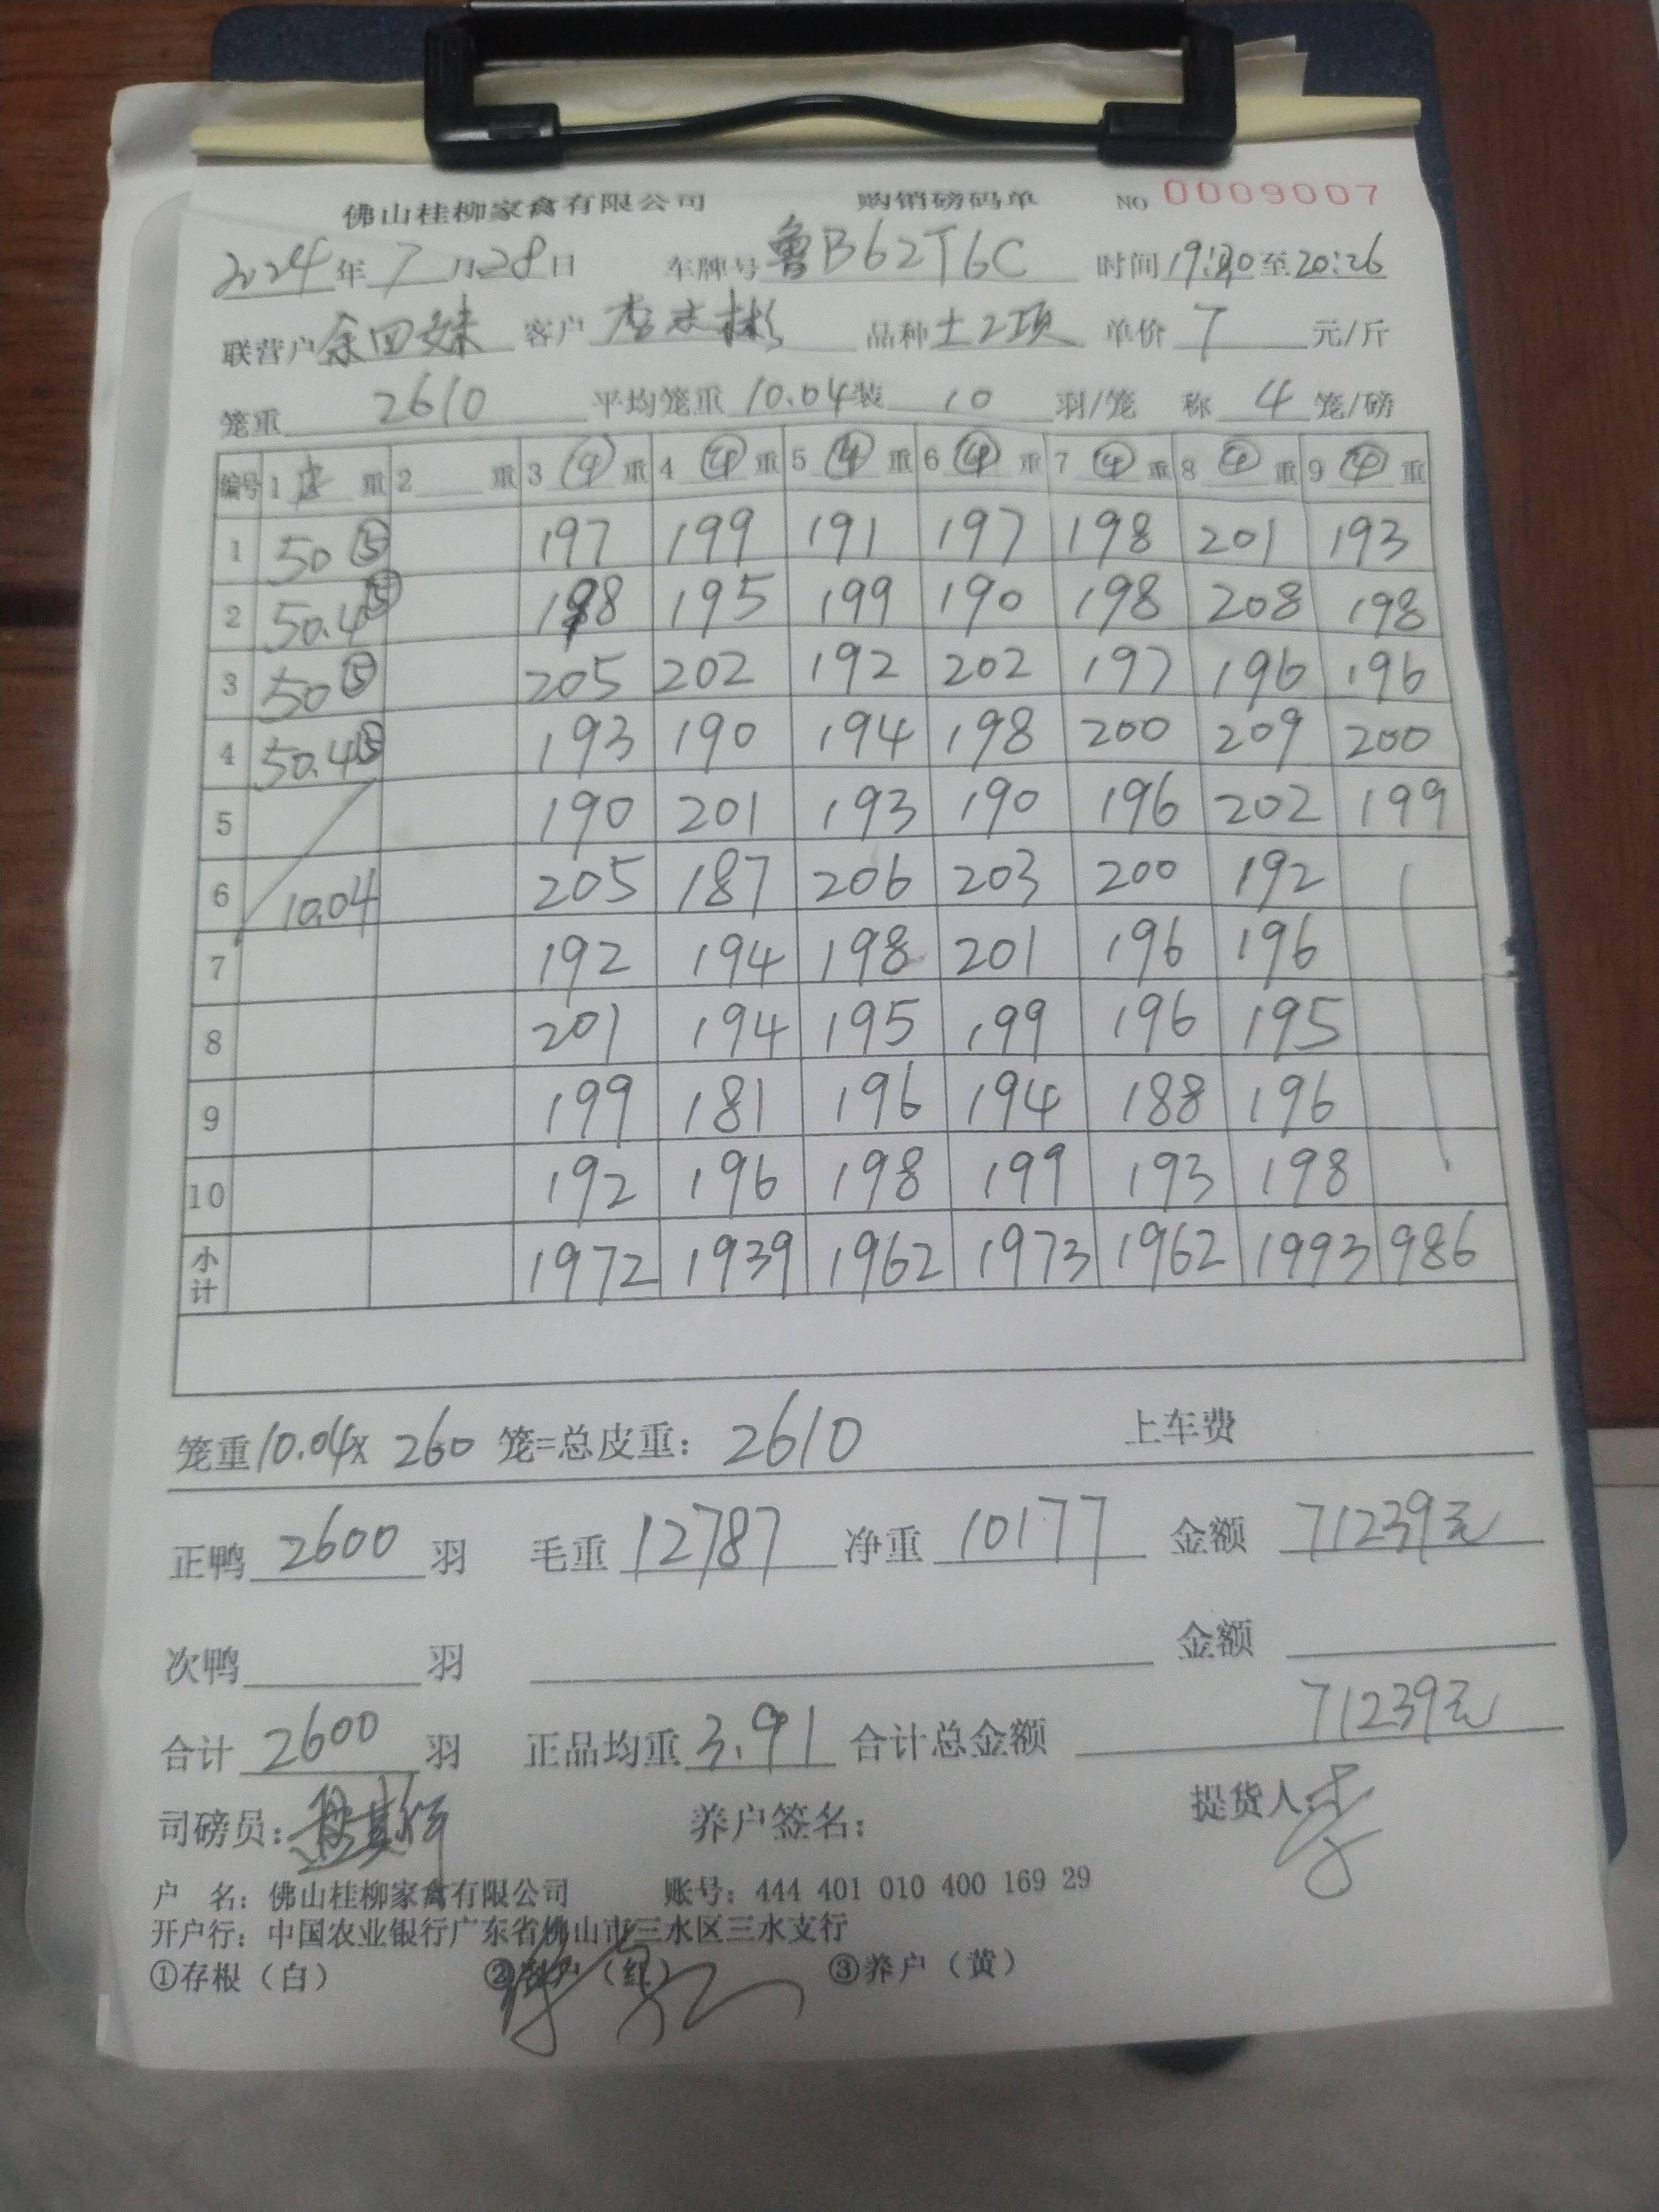 佛山桂柳家禽有限公司 购销磅码单 NO 0009007
2024年7月28日 车牌号鲁B62T6C 时间19:30至20:26
联营户余四妹 客户李志彬 品种土2项 单价7元/斤
笼重2610 平均笼重10.04装10羽/笼 称4笼/磅
编号 1 重 2 重 3 ④ 重 4 ④ 重 5 ④ 重 6 ④ 重 7 ④ 重 8 ④ 重 9 ④ 重
1 50⑤ 197 199 191 197 198 201 193
2 50.4⑤ 198 195 199 190 198 208 198
3 50⑤ 205 202 192 202 197 196 196
4 50.4⑤ 193 190 194 198 200 209 200
5 190 201 193 190 196 202 199
6 10.04 205 187 206 203 200 192
7 192 194 198 201 196 196
8 201 194 195 199 196 195
9 199 181 196 194 188 196
10 192 196 198 199 193 198
小计 1972 1939 1962 1973 1962 1993 986
笼重10.04x 260 笼=总皮重：2610 上车费
正鸭2600羽 毛重12787 净重10177 金额71239元
次鸭 羽 金额
合计2600羽 正品均重3.91 合计总金额71239元
司磅员： 养户签名： 提货人：李
户 名：佛山桂柳家禽有限公司 账号：444 401 010 400 169 29
开户行：中国农业银行广东省佛山市三水区三水支行
①存根（白） ②客户（红） ③养户（黄）